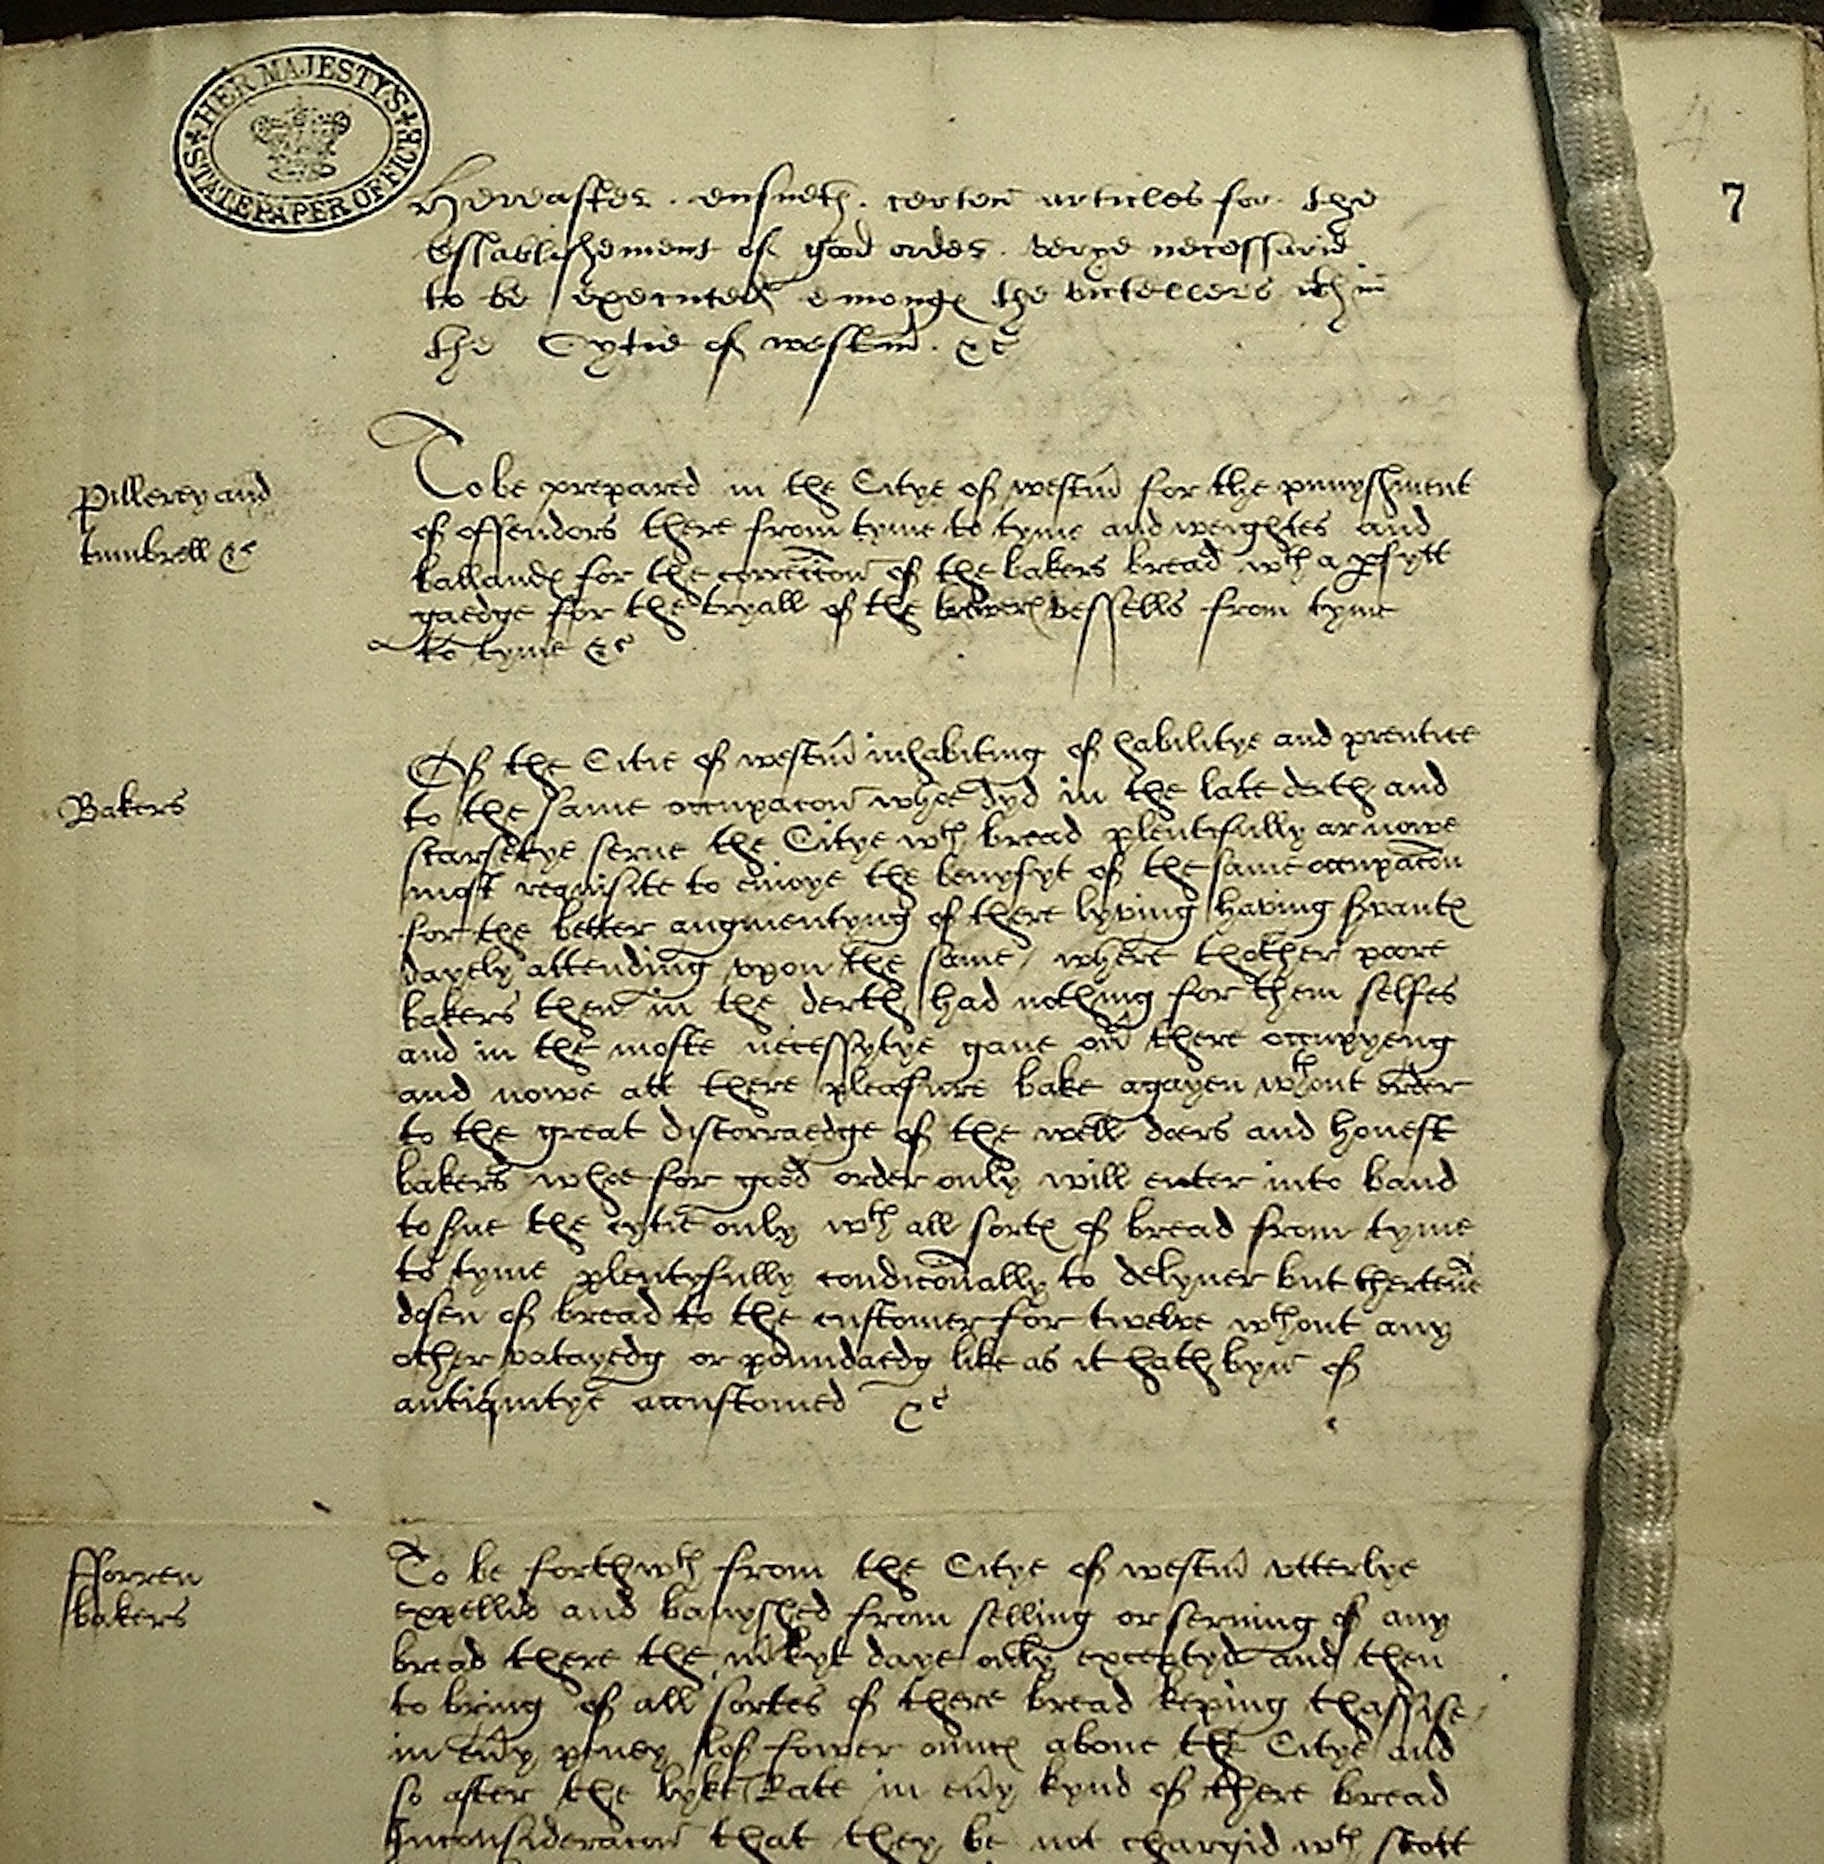 HER MAJESTY'S
STATE PAPER OFFICE
4
7
Hereafter ensueth certen articles for the
establishement of good order verye necessarie
to be executed emonge the victellers wthin
the Cytie of westm̃ &c
Pillerey and
tumbrell &c
To be prepared in the Citye of westm̃ for the punyshment
of offendors there from tyme to tyme and weightes and
ballandꝭ for the correccõn of the bakers bread wth a ꝑfytt
gaedge for the tryall of the brewerꝭ vessells from tyme
to tyme &c
Bakers
Of the Citie of westm̃ inhabiting of habilitye and prentice
to the same occupacõn whoe dyd in the late derth and
scarsetye serue the Citye wth bread plentifully ar nowe
most requisite to enioye the benyfyt of the same occupacõn
for the better augmentyng of there lyving having ſvantꝭ
dayely attending vpon the same / where thother poore
bakers then in the derth had nothing for them selfes
and in the moste necessytye gaue oũ there occupyeng
and nowe att there pleasure bake agayen wthout order
to the great discorraedge of the well doers and honest
bakers whoe for good order only will enter into band
to ſue the cytie only wth all sortꝭ of bread from tyme
to tyme plentyfully condicõnally to delyuer but thertene
dosen of bread to the customer for twelve wthout any
other vatayedg or poundaedg like as it hath byn of
antiquitye accustomed &c
fforren
bakers
To be forthwth from the Citye of westm̃ vtterlye
expellid and banyshed from selling or seruing of any
bread there the m̃kyt daye only exceptyd and then
to bring of all sortes of there bread keping thassise /
in eũy peney lof fower ouncꝭ aboue the Citye and
so after the lyke Rate in eũy kynd of there bread
Inconsideracõn that they be not chargid wth scott